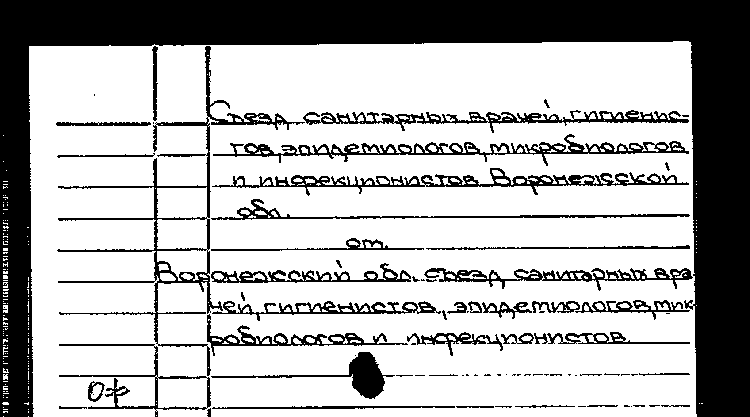 Съезд санитарных врачей, гигиенис-
тов, эпидемиологов, микробиологов
и инфекционистов Воронежской
обл.
от.
Воронежский обл. съезд санитарных вра
чей, гигиенистов, эпидемиологов, мик
робиологов и инфекционистов.
Оф